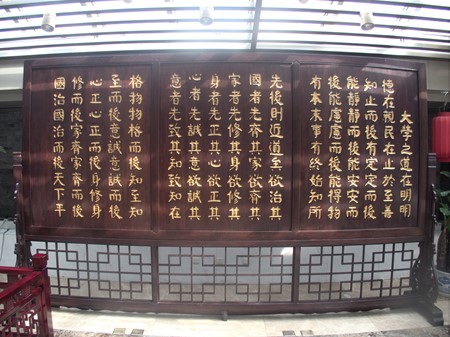 大學之道在明明
德在親民在止於至善
知止而後有定定而後
能靜靜而後能安安而
後能慮慮而後能得物
有本末事有終始知所
先後則近道至欲治其
國者先齊其家欲齊其
家者先修其身欲修其
身者先正其心欲正其
心者先誠其意欲誠其
意者先致其知致知在
格物物格而後知至知
至而後意誠意誠而後
心正心正而後身修身
修而後家齊家齊而後
國治國治而後天下平